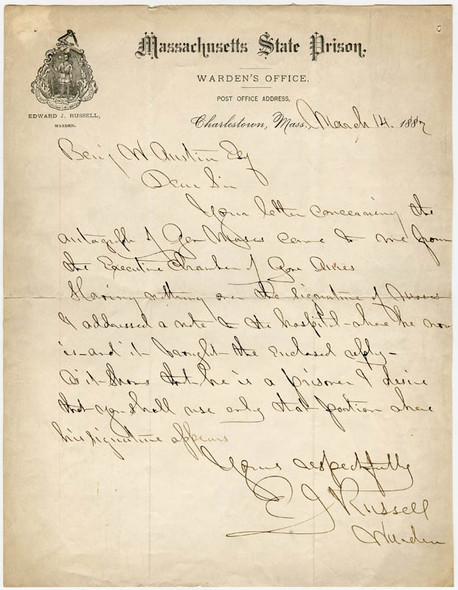 Massachusetts State Prison.
WARDEN'S OFFICE.
POST OFFICE ADDRESS,
EDWARD J. RUSSELL,
WARDEN.
Charlestown, Mass. March 14. 1887
Benj W Austin Esq
Dear Sir
Your letter concerning the
autograph of Gov Moses came to me from
the Executive Chamber of Gov Ames
Having nothing over the signature of Moses
I addressed a note to the hospital - where he now
is - and it brought the enclosed reply -
As it shows that he is a prisoner I desire
that you shall use only that portion where
his signature appears
Yours respectfully
E J Russell
Warden